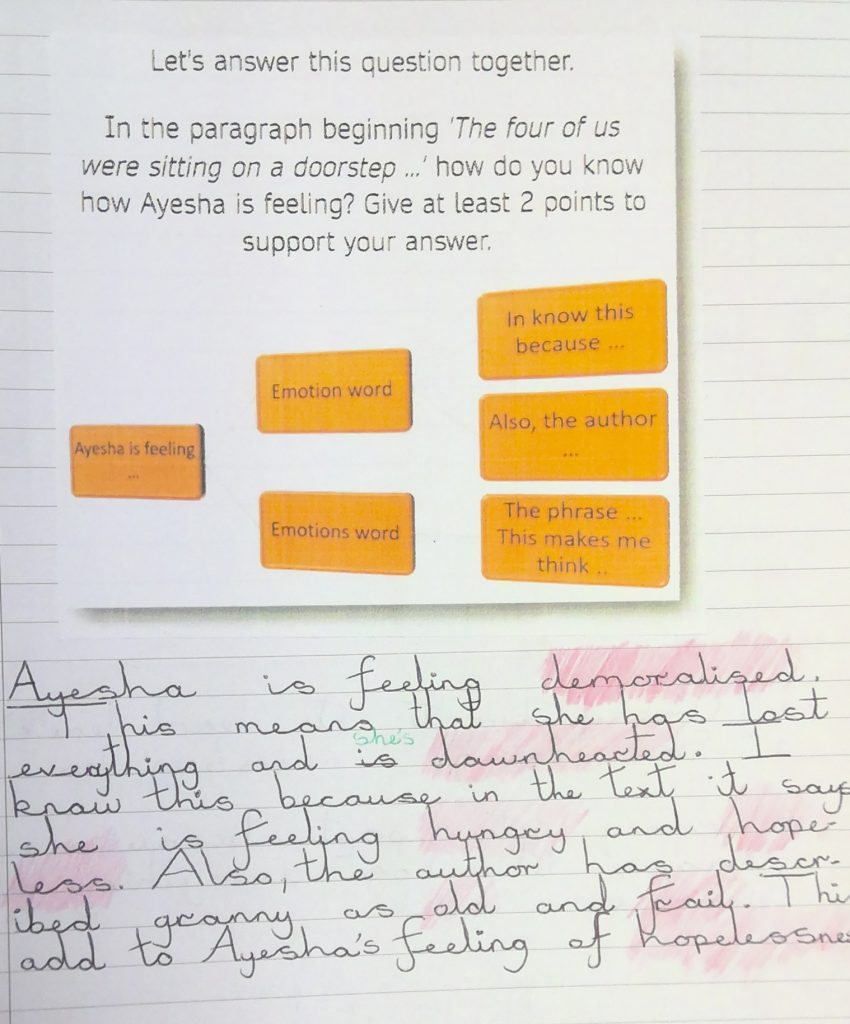 Let's answer this question together.
In the paragraph beginning 'The four of us
were sitting on a doorstep ...' how do you know
how Ayesha is feeling? Give at least 2 points to
support your answer.
In know this
because ...
Emotion word
Also, the author
...
Ayesha is feeling
...
Emotions word
The phrase ...
This makes me
think ..
Ayesha is feeling demoralised.
This means that she has lost
she's
everything and is downhearted. I
know this because in the text it says
she is feeling hungry and hope-
less. Also, the author has descr-
ibed granny as old and frail. Thi
add to Ayesha's feeling of hopelessne